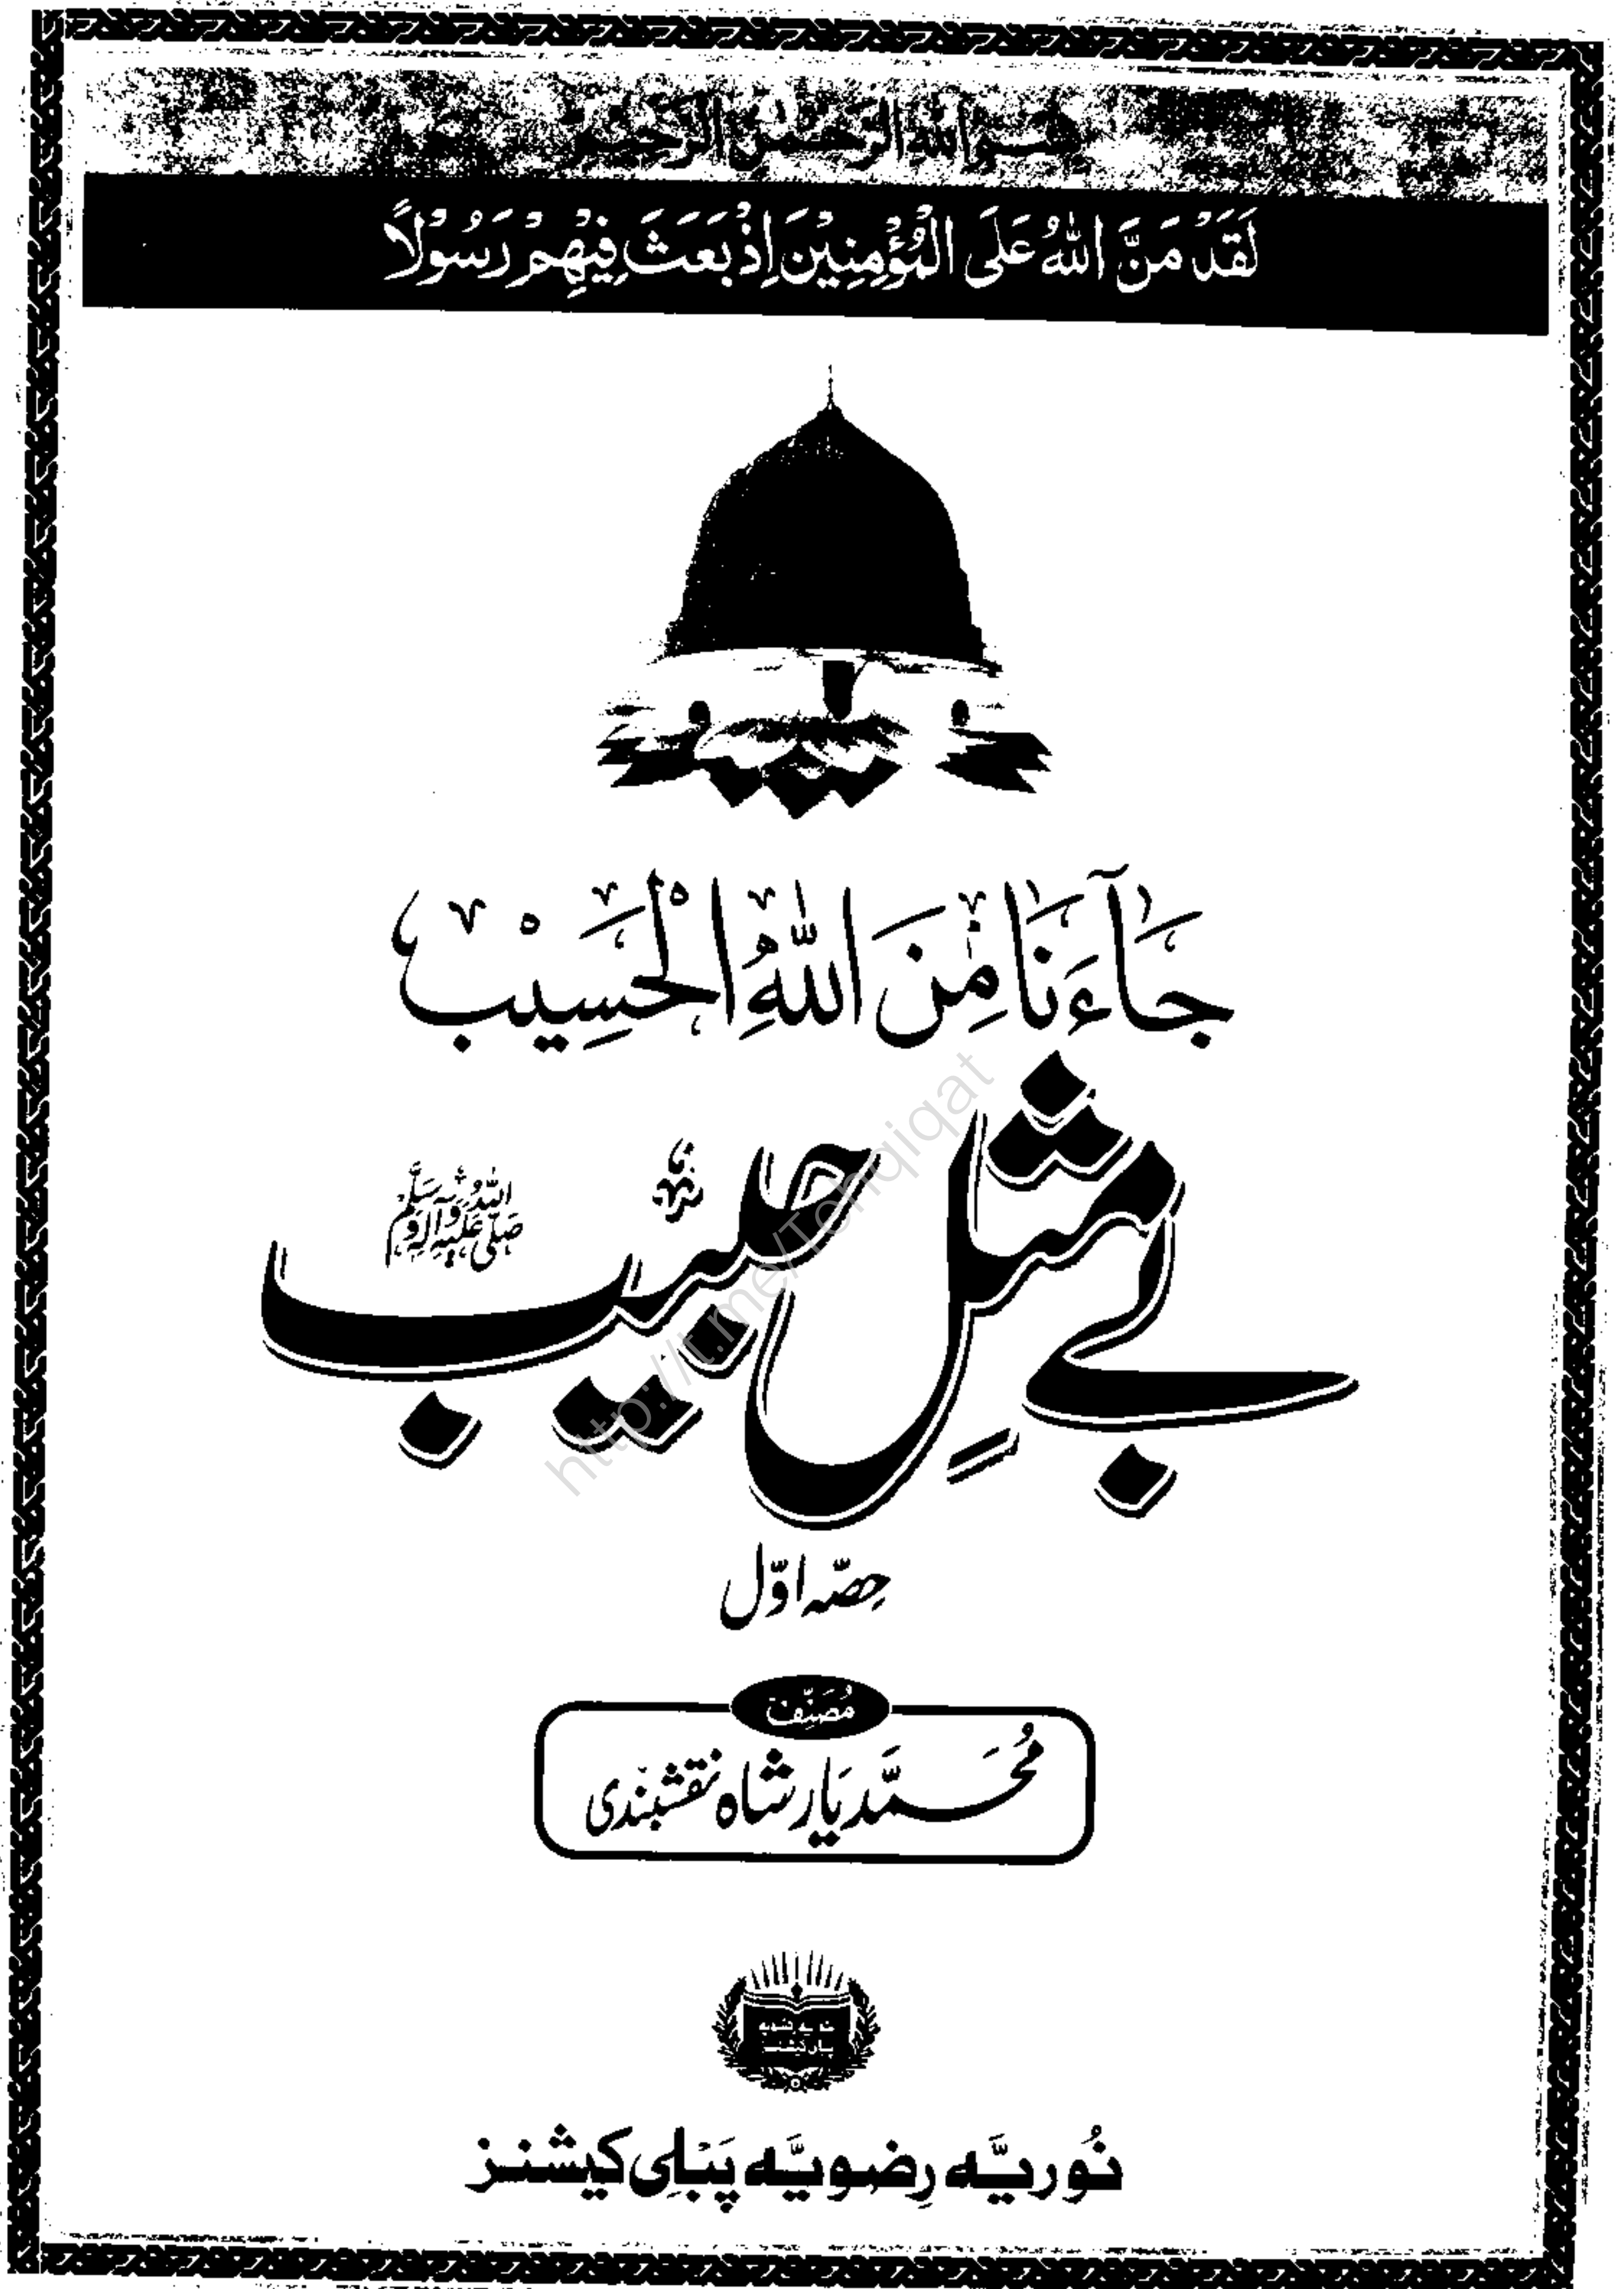 بسم الله الرحمن الرحيم
لَقَدْ مَنَّ اللّٰهُ عَلَى الْمُؤْمِنِيْنَ اِذْ بَعَثَ فِيْهِمْ رَسُوْلًا
جَآءَنَا مِنَ اللّٰهِ الْحَسِيْب
بے مثلِ حبیب
صلی اللہ علیہ وآلہ وسلم
http://t.me/Tehqiqat
حِصّہ اوّل
مُصَنِّف
مُحَمَّد یَار شاہ نقشبندی
نوریہ رضویہ
پبلی کیشنز
نُوریَّہ رِضویَّہ پَبْلِی کیشنز